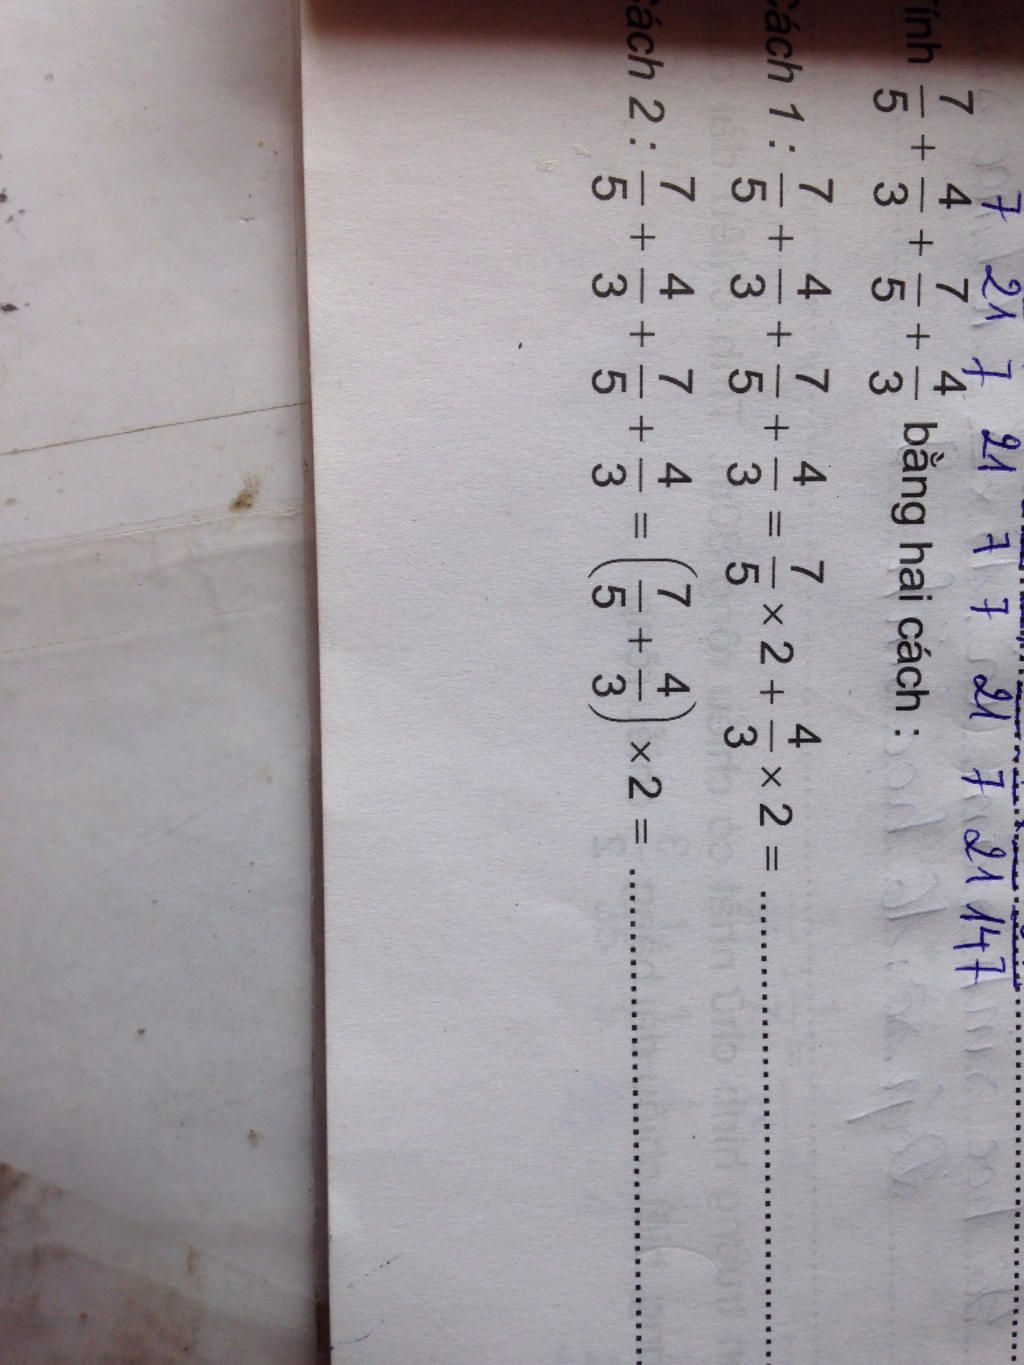 7 21 7 21 7 7 21 7 21 147
Tính 7/5 + 4/3 + 7/5 + 4/3 bằng hai cách :
Cách 1 : 7/5 + 4/3 + 7/5 + 4/3 = 7/5 × 2 + 4/3 × 2 = ..........
Cách 2 : 7/5 + 4/3 + 7/5 + 4/3 = (7/5 + 4/3) × 2 = ..........